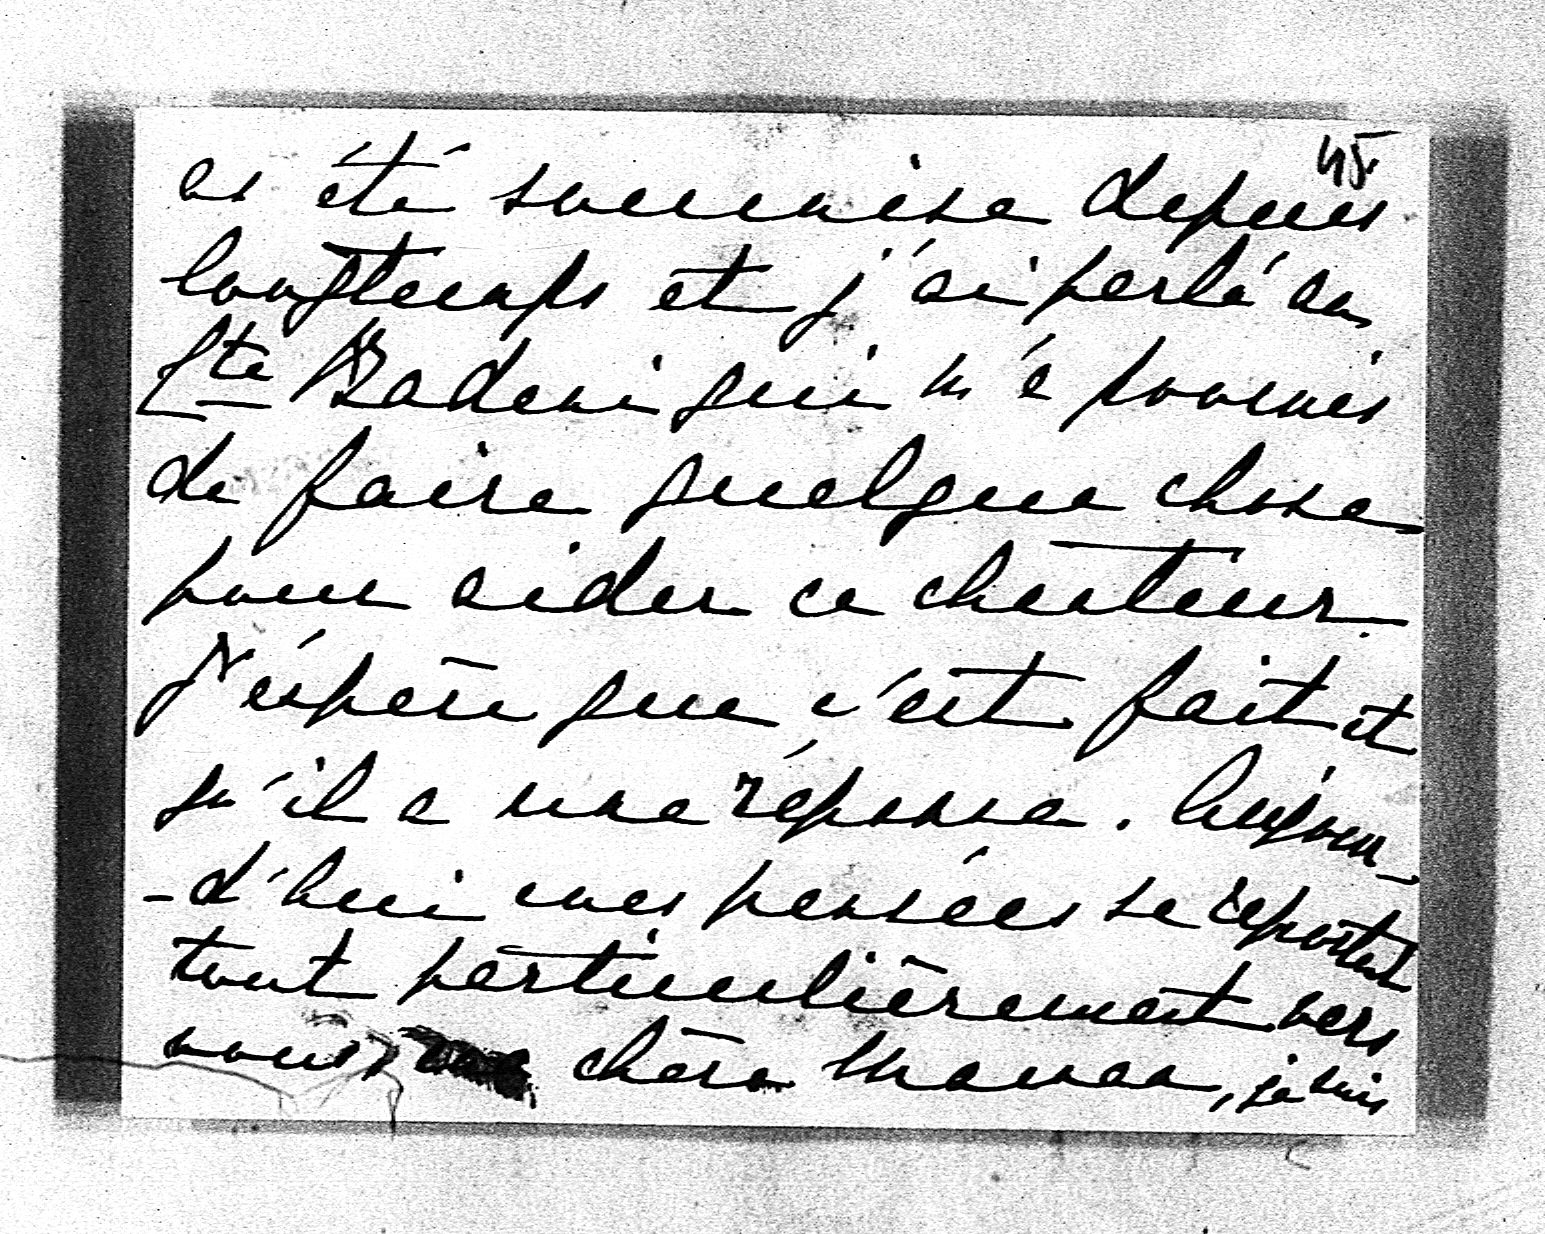 45.
as été soumise depuis
longtemps et j'ai parlé au
Cte Badeni qui m'a promis
de faire quelque chose
pour aider ce chanteur.
J'espère que c'est fait et
qu'il a une réponse. Aujour-
-d'hui mes pensées se reportent
tout particulièrement vers
vous, chère Maman, je suis